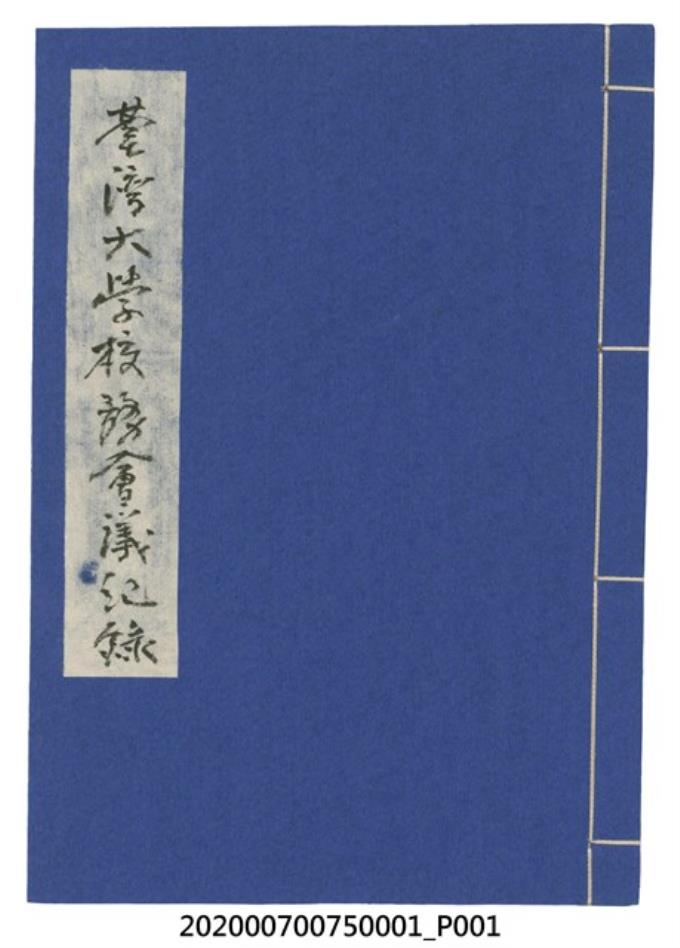 臺灣大學校務會議紀錄
202000700750001_P001